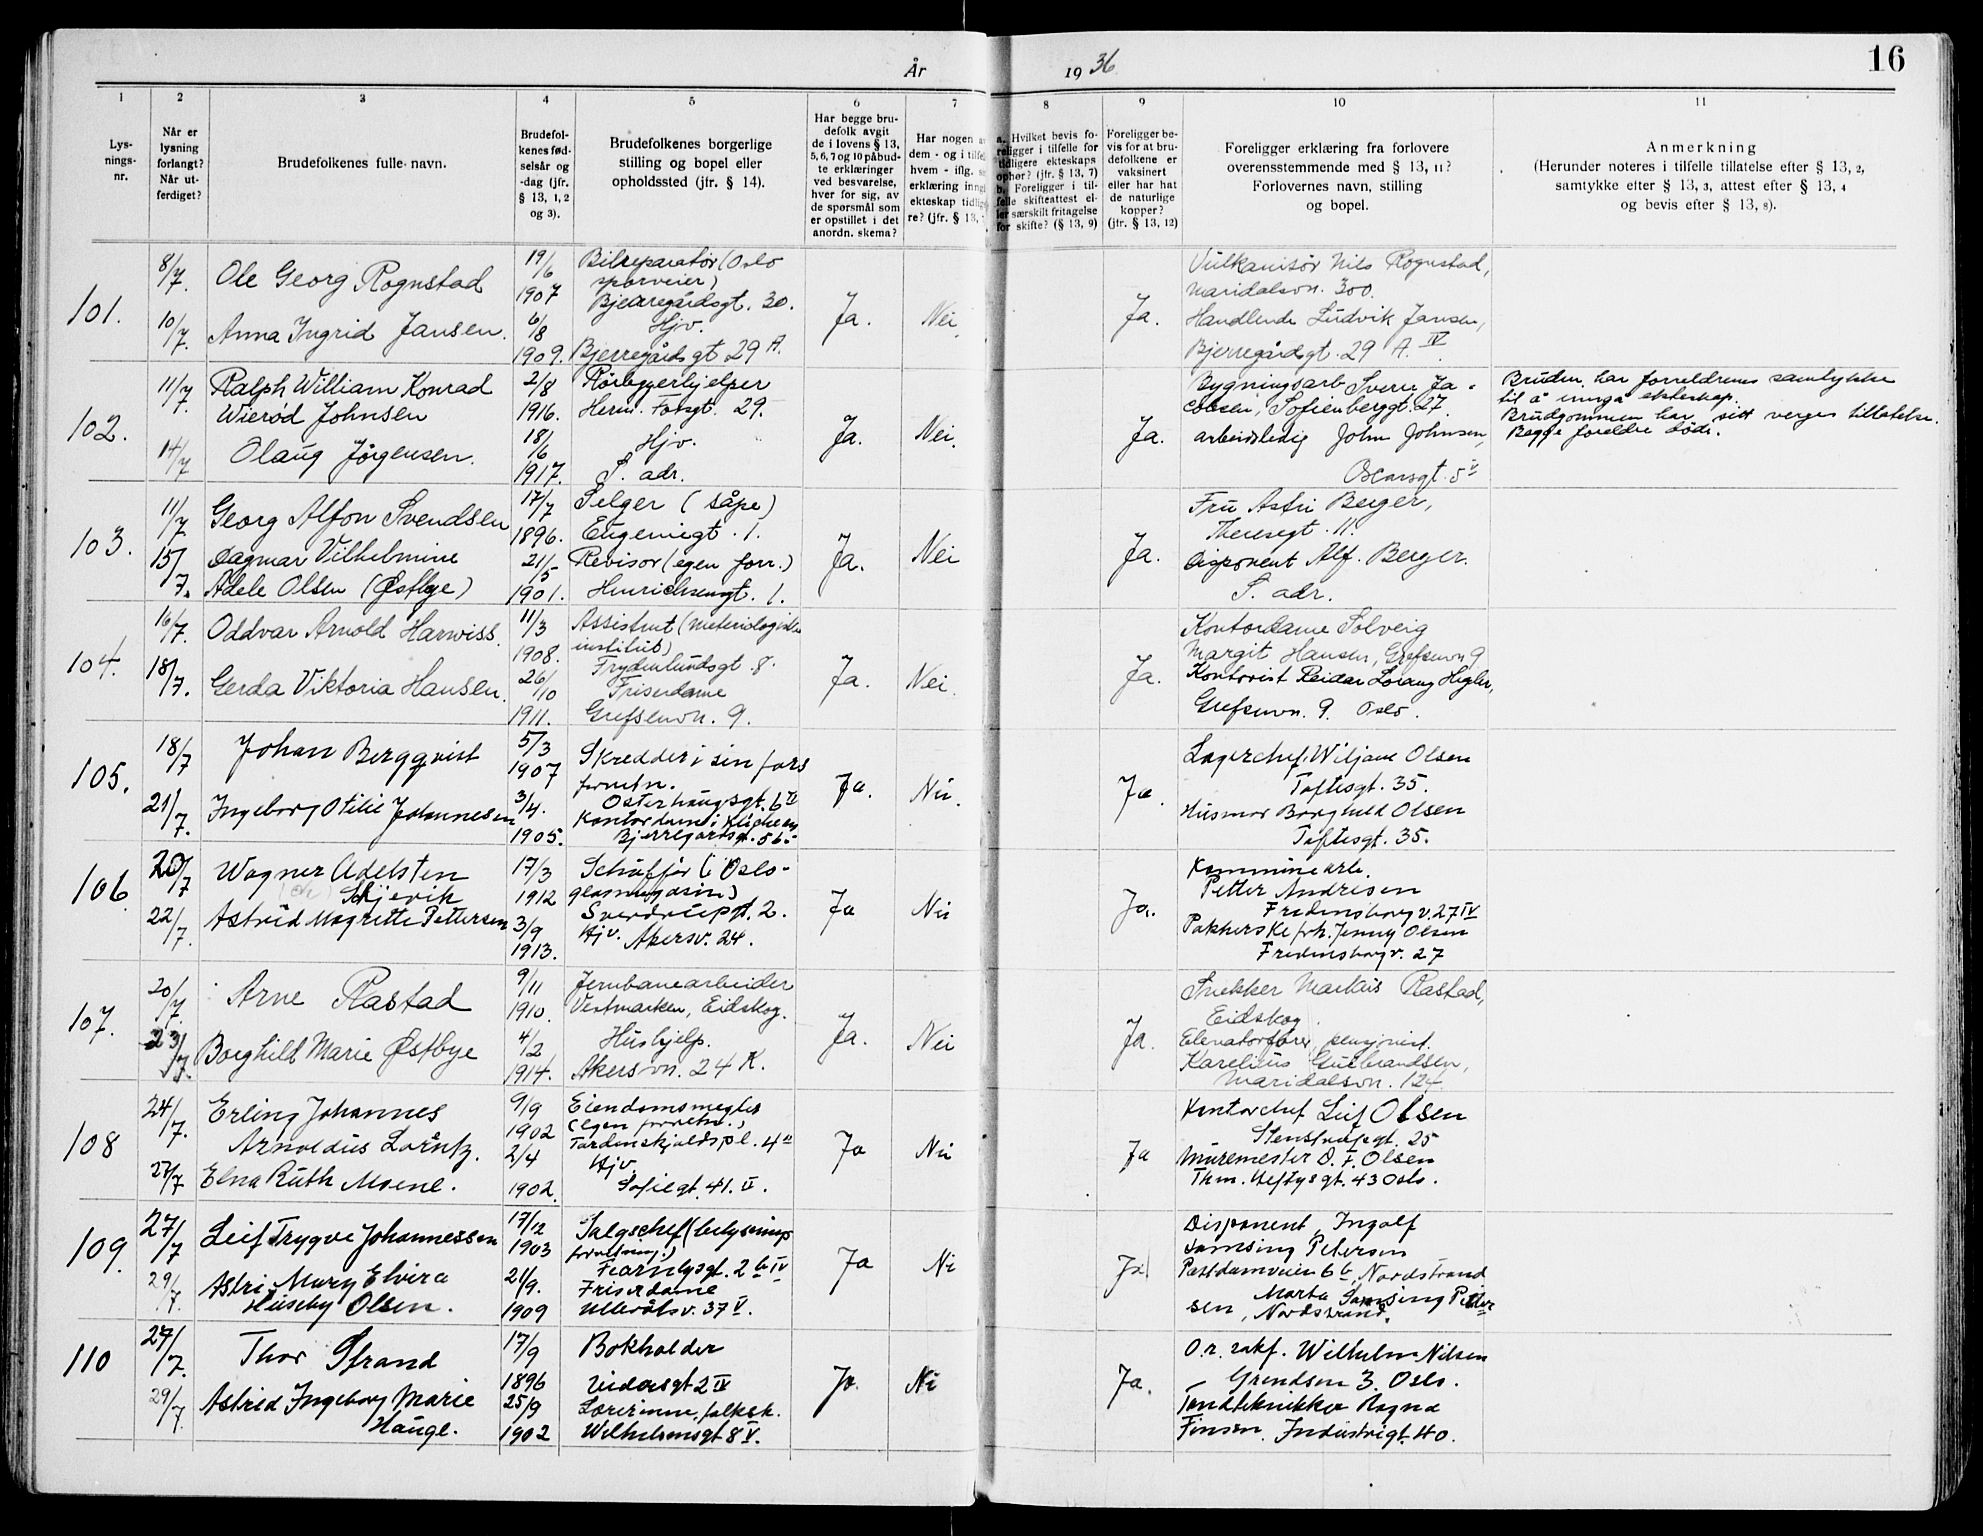 År 1936
16
1 2 3 4 5 6 7 8 9 10 11
Lys-
nings-
nr.
Når er
lysning
forlangt?
Når ut-
ferdiget?
Brudefolkenes fulle navn.
Brudefol-
kenes fød-
selsår og
-dag (jfr.
§ 13, 1, 2
og 3).
Brudefolkenes borgerlige
stilling og bopel eller
opholdssted (jfr. § 14).
Har begge bru-
defolk avgit
de i lovens § 13,
5, 6, 7 og 10 påbud-
te erklæringer
ved besvarelse,
hver for sig, av
de spørsmål som
er opstillet i det
anordn. skema?
Har nogen
dem - og i tilfel
hvem - iflg.
erklæring inng
ekteskap tidlig
re? (jfr. § 13,
a. Hvilket bevis fo-
religger i tilfelle for
tidligere ekteskaps
ophør? (jfr. § 13, 7)
b. Foreligger i til-
felle skifteattest el-
ler særskilt fritagelse
for skifte? (§ 13, 9)
Foreligger be-
vis for at bru-
defolkene er
vaksinert
eller har hat
de naturlige
kopper?
(jfr. § 13, 12)
Foreligger erklæring fra forlovere
overensstemmende med § 13, 11?
Forlovernes navn, stilling
og bopel.
Anmerkning
(Herunder noteres i tilfelle tillatelse efter § 13, 2,
samtykke efter § 13, 3, attest efter § 13, 4
og bevis efter § 13, 8).
101.
8/7.
10/7.
Ole Georg Rognstad
Anna Ingrid Jansen.
19/6
1907
6/8
1909.
Bilreparatør (Oslo
sporveier)
Bjerregårdsgt. 30.
Hjv.
Bjerregårdsgt 29 A.
Ja.
Nei
Ja.
Vulkanisør Nils Rognstad,
Maridalsvn. 300.
Handlende Ludvik Jansen,
Bjerregårdsgt. 29 A. IV
102.
11/7.
14/7
Ralph William Konrad
Wierød Johnsen
Olaug Jørgensen.
2/8
1916.
18/6
1917.
Rørleggerhjelper
Herm. Fossgt. 29.
Hjv.
S. adr.
Ja.
Nei.
Ja.
Bygningsarb. Sverre Ja-
cobsen, Sofienberggt. 27.
arbeidsledig John Johnsen,
Oscarsgt. 5 V
Bruden har foreldrenes samtykke
til å inngå ekteskap.
Brudgommen har sitt verges tillatelse.
Begge foreldre døde.
103.
11/7
15/7.
Georg Alfon Svendsen
Dagmar Vilhelmine
Adele Olsen (Østbye)
17/7
1896.
21/5
1901.
Selger (såpe)
Eugeniegt. 1.
Revisor (egen forr.)
Henrichsensgt. 1.
Ja.
Nei
Ja.
Fru Astri Berger,
Theresegt. 11.
Disponent Alf. Berger.
S. adr.
104.
16/7.
18/7.
Oddvar Arnold Harwiss.
Gerda Viktoria Hansen.
11/3
1908.
26/10
1911.
Assistent (Meteriologiske
institut)
Frydenlundsgt. 8.
Friserdame
Grefsenvn. 9.
Ja.
Nei.
Ja.
Kontordame Solveig
Margit Hansen, Grefsenvn 9
Kontorist Reidar Lorang Higler,
Grefsenvn. 9. Oslo.
105.
18/7
21/7.
Johan Bergqvist
Ingeborg Otilie Johannesen
5/3
1907
3/4.
1905.
Skredder i sin fars
forretn.
Osterhaugsgt. 6 II
Kontordame i
Bjerregårdsgt. 56.
Ja.
Nei.
Ja.
Lagerchef Wiljam Olsen
Toftesgt. 35.
Husmor Borghild Olsen
Toftesgt. 35.
106.
20/7
22/7.
Wagner Adelsten
Skjervik
Astrid Magrette Pettersen
17/3
1912
3/9
1913.
Schuffør (i Oslo-
glassmagasin)
Sverdrupsgt. 2.
Hjv. Akersv. 24.
Ja
Nei
Ja.
Kommunearb.
Petter Andresen
Fredensborgv. 27 IV
Pakkerske frk. Jenny Olsen
Fredensborgv. 27
107.
20/7.
23/7.
Arne Rastad
Borghild Marie Østbye
9/11
1910.
4/2
1914.
Jernbanearbeider
Vestmarken, Eidskog.
Hushjelp.
Akersvn. 24 K.
Ja.
Nei
Ja.
Snekker Markus Rastad,
Eidskog.
Elevatorfører, pensjonist.
Karelius Gulbrandsen,
Maridalsvn. 124
108
24/7.
27/7
Erling Johannes
Arnoldus Lorntz.
Elna Ruth Moene.
9/9
1902
2/4
1902.
Eiendomsmegler
(egen forretn.)
Tordenskjoldspl. 4 II
Hjv.
Sofiegt. 41. II.
Ja
Nei
Ja
Kontorchef Leif Olsen
Stenstrupsgt. 25
Muremester O. F. Olsen
Thm. Heftys gt. 43 Oslo.
109.
27/7
29/7.
Leif Trygve Johannessen
Astri Mary Elvira
Huseby Olsen.
17/12
1903
21/9.
1909
Salgschef (belysnings
forretning.)
Fearnleysgt. 2 b IV
Friserdame
Ullevålsv. 37 V.
Ja
Nei
Ja
Disponent Ingolf
Samsing Petersen
Pastdamveien 6 b, Nordstrand
Marta Samsing Peter
sen, Nordstrand.
110
27/7.
29/7.
Thor Strand
Astrid Ingeborg Marie
Hauge.
17/9
1896
25/9
1902
Bokholder
Vidarsgt 2 IV
Lærerinne, folksk.
Wilhelmsgt 8 V.
Ja.
Nei
Ja.
O.r. sakf. Wilhelm Nilsen
Grendsen 3. Oslo.
Tandtekniker Ragna
Finsen. Industrigt. 40.